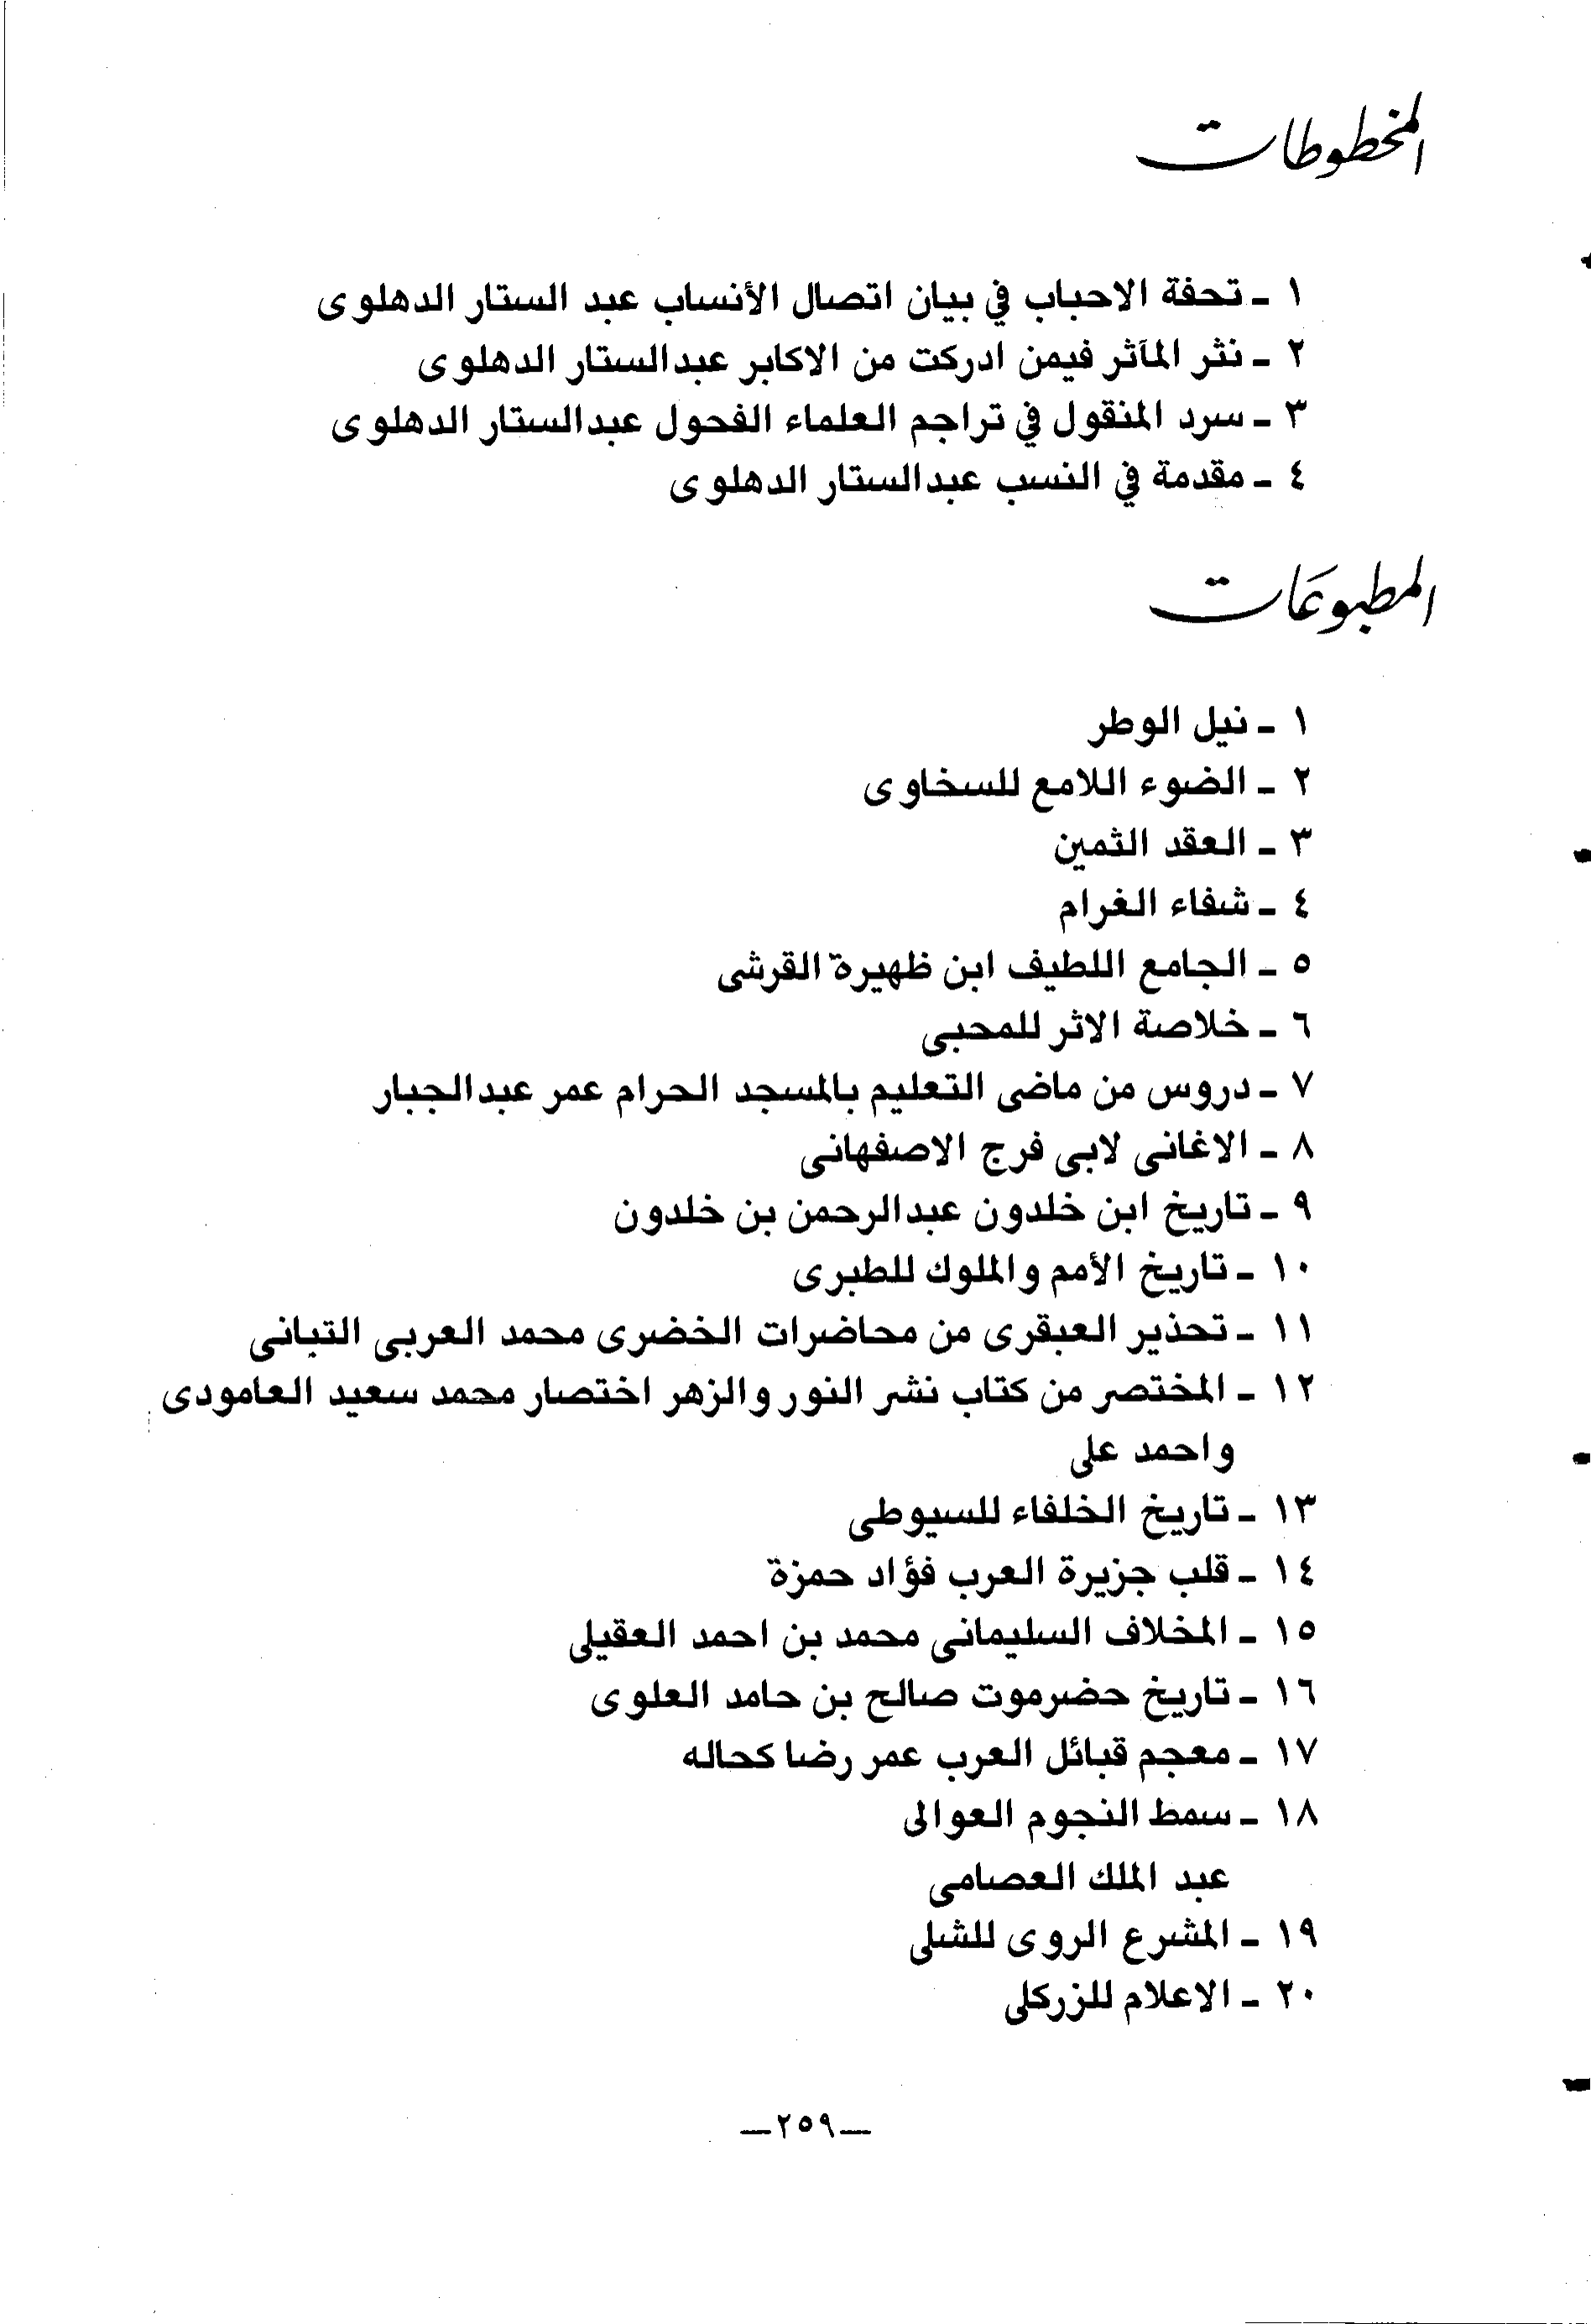 المخطوطات
١ - تحفة الاحباب في بيان اتصال الأنساب عبد الستار الدهلوى
٢ - نثر المآثر فيمن ادركت من الاكابر عبدالستار الدهلوى
٣ - سرد المنقول في تراجم العلماء الفحول عبدالستار الدهلوى
٤ - مقدمة في النسب عبدالستار الدهلوى
المطبوعَات
١ - نيل الوطر
٢ - الضوء اللامع للسخاوى
٣ - العقد الثمين
٤ - شفاء الغرام
٥ - الجامع اللطيف ابن ظهيرة القرشى
٦ - خلاصة الاثر للمحبى
٧ - دروس من ماضى التعليم بالمسجد الحرام عمر عبدالجبار
٨ - الاغانى لابى فرج الاصفهانى
٩ - تاريخ ابن خلدون عبدالرحمن بن خلدون
١٠ - تاريخ الأمم والملوك للطبرى
١١ - تحذير العبقرى من محاضرات الخضرى محمد العربى التبانى
١٢ - المختصر من كتاب نشر النور والزهر اختصار محمد سعيد العامودى
واحمد على
١٣ - تاريخ الخلفاء للسيوطى
١٤ - قلب جزيرة العرب فؤاد حمزة
١٥ - المخلاف السليمانى محمد بن احمد العقيلى
١٦ - تاريخ حضرموت صالح بن حامد العلوى
١٧ - معجم قبائل العرب عمر رضا كحاله
١٨ - سمط النجوم العوالى
عبد الملك العصامى
١٩ - المشرع الروى للشلى
٢٠ - الاعلام للزركلى
—٢٥٩—